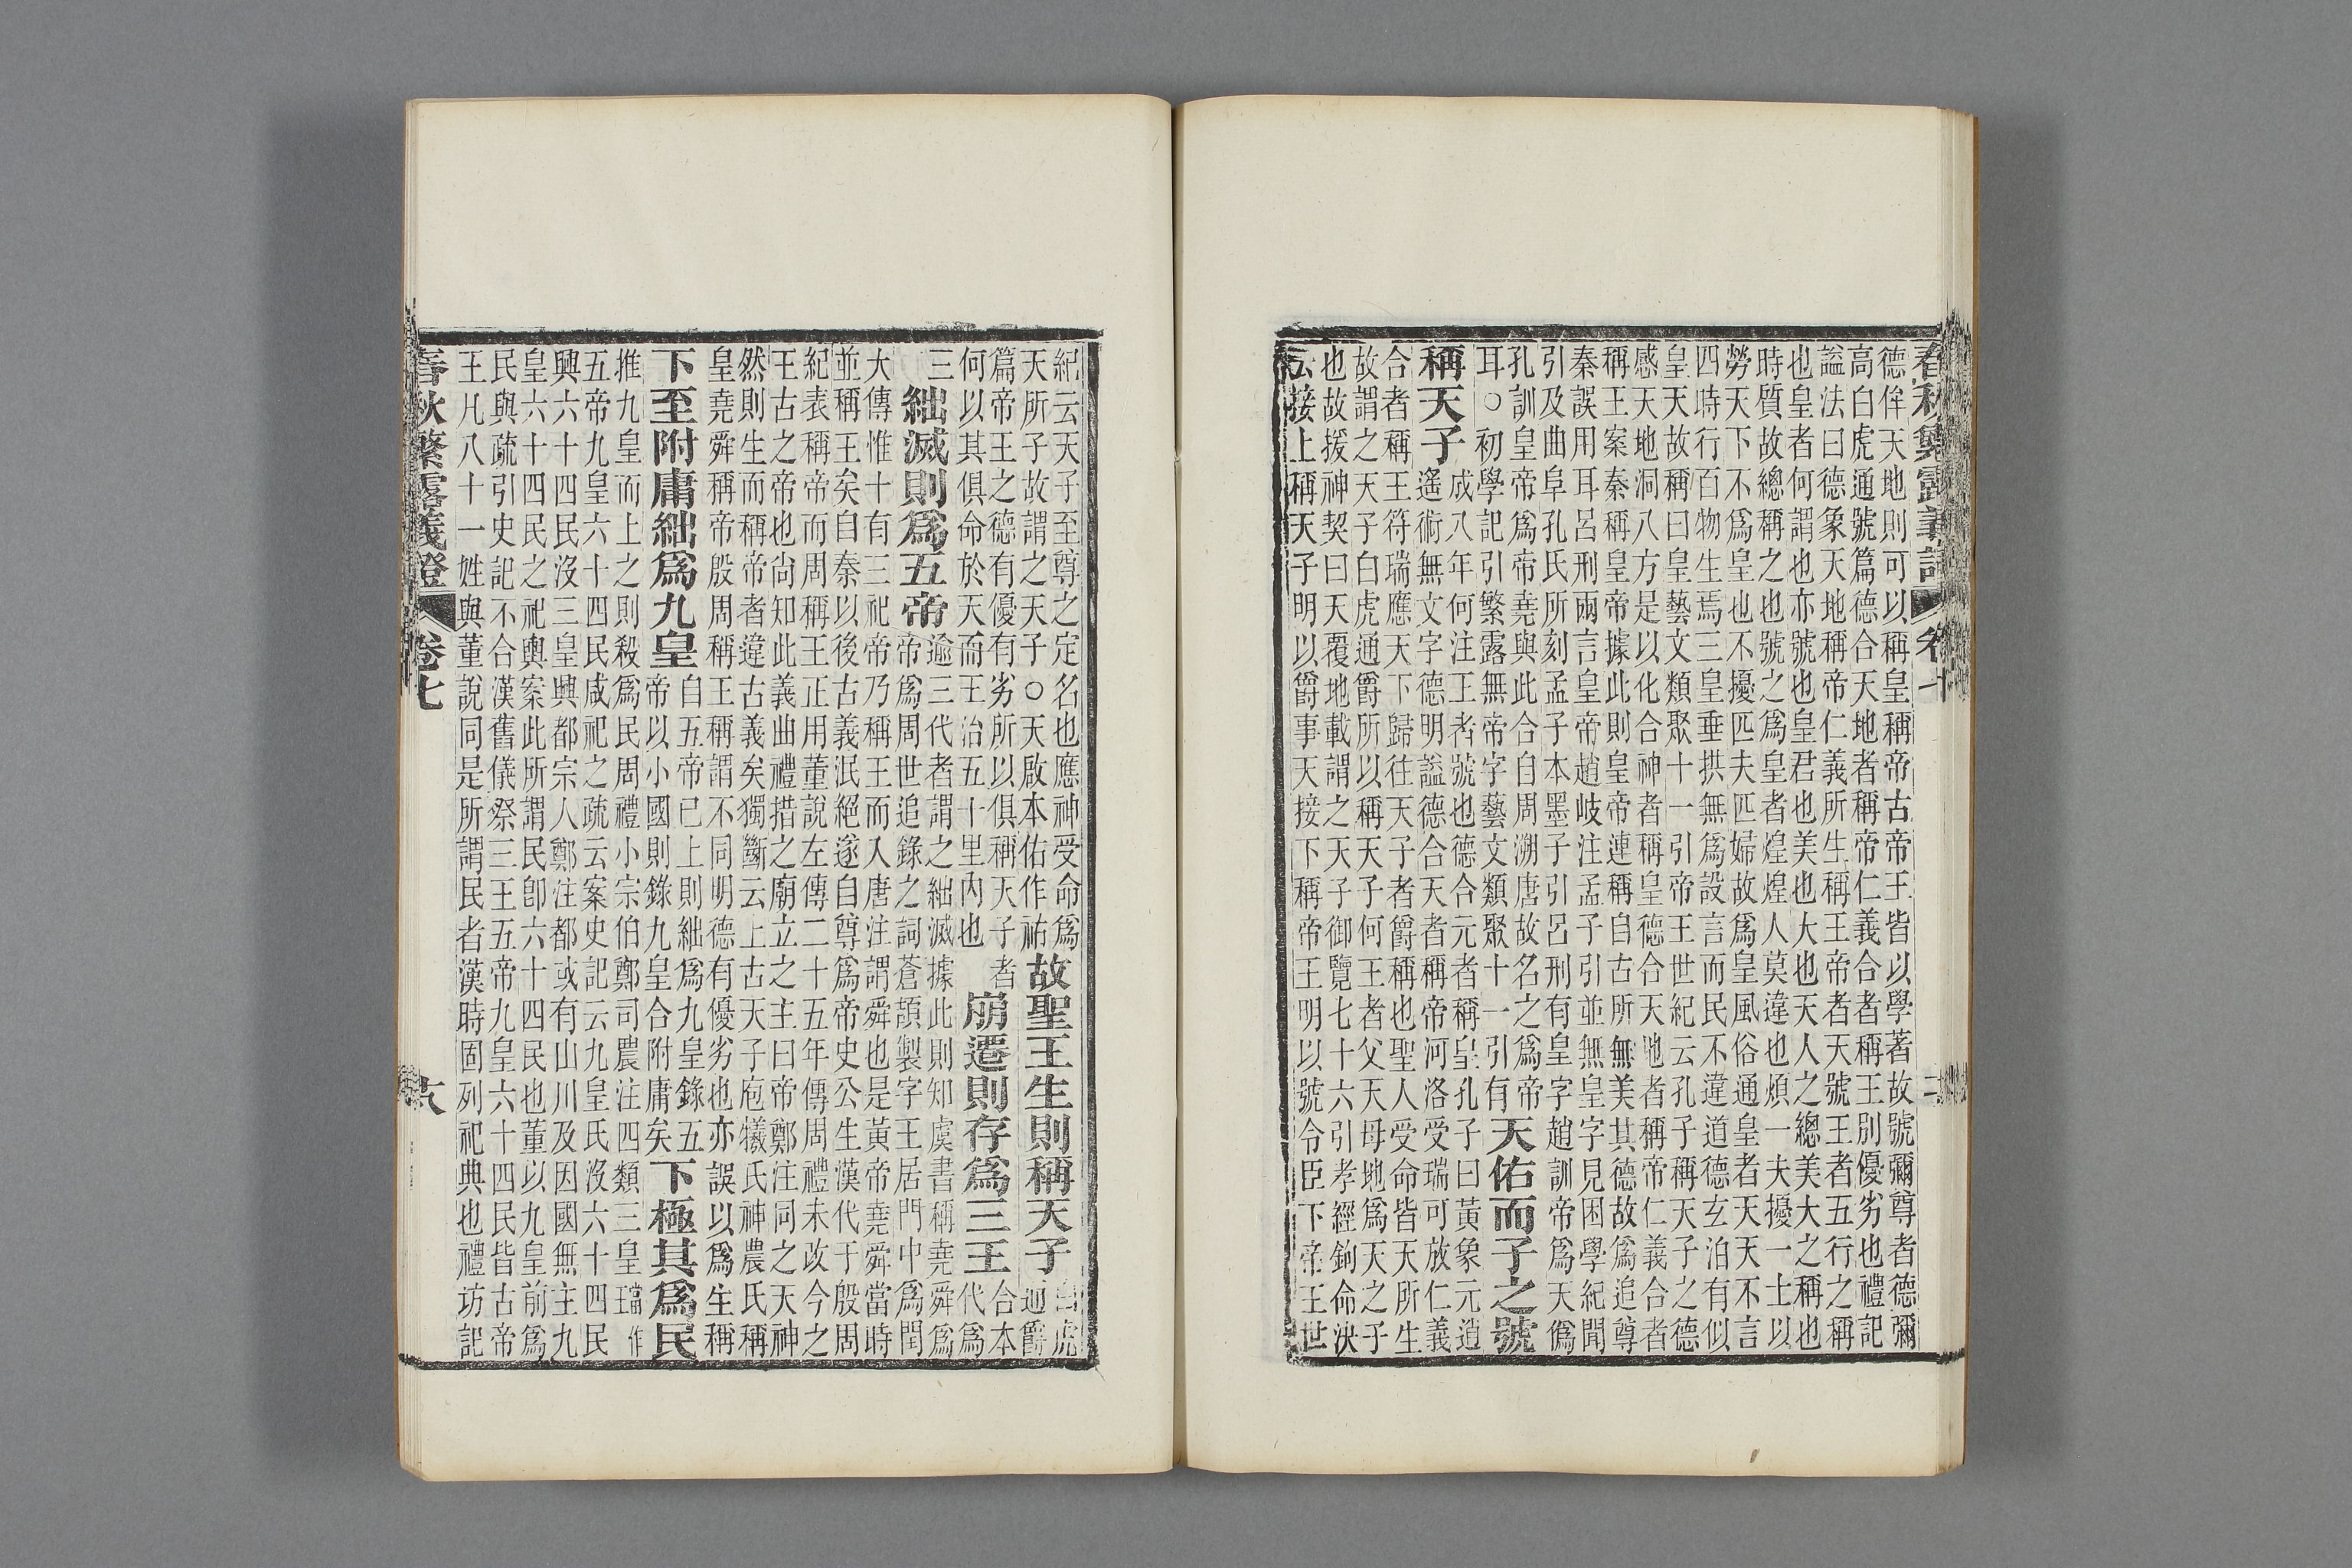 春秋繁露義證 卷七
德侔天地則可以稱皇稱帝古帝王皆以學著故號彌尊者德彌
高白虎通號篇德合天地者稱帝仁義合者稱王別優劣也禮記
謚法曰德象天地稱帝仁義所生稱王帝者天號王者五行之稱
也皇者何謂也亦號也皇君也美也大也天人之總美大之稱也
時質故總稱之也號之爲皇者煌煌人莫違也煩一夫擾一士以
勞天下不爲皇也不擾匹夫匹婦故爲皇風俗通皇者天天不言
四時行百物生焉三皇垂拱無爲設言而民不違道德玄泊有似
皇天故稱曰皇藝文類聚十一引帝王世紀云孔子稱天子之德
感天地洞八方是以化合神者稱皇德合天地者稱帝仁義合者
稱王案秦稱皇帝據此則皇帝連稱自古所無美其德故爲追尊
秦誤用耳呂刑兩言皇帝趙岐注孟子引並無皇字見困學紀聞
引及曲阜孔氏所刻孟子本墨子引呂刑有皇字趙訓帝爲天僞
孔訓皇帝爲帝堯與此合自周溯唐故名之爲帝
耳○初學記引繁露無帝字藝文類聚十一引有
天佑而子之號
稱天子
成八年何注王者號也德合元者稱皇孔子曰黃象元逍
遙術無文字德明謚德合天者稱帝河洛受瑞可放仁義
合者稱王符瑞應天下歸往天子者爵稱也聖人受命皆天所生
故謂之天子白虎通爵所以稱天子何王者父天母地爲天之子
也故援神契曰天覆地載謂之天子御覽七十六引孝經鉤命決
云接上稱天子明以爵事天接下稱帝王明以號令臣下帝王世
紀云天子至尊之定名也應神受命爲
天所子故謂之天子○天啟本佑作祐
故聖王生則稱天子
白虎
通爵
篇帝王之德有優有劣所以俱稱天子者
何以其俱命於天而王治五十里內也
崩遷則存爲三王
合本
代爲
三
絀滅則爲五帝
逾三代者謂之絀滅據此則知虞書稱堯舜爲
帝爲周世追錄之詞蒼頡製字王居門中爲閏
大傳惟十有三祀帝乃稱王而入唐注謂舜也是黃帝堯舜當時
並稱王矣自秦以後古義泯絕遂自尊爲帝史公生漢代于殷周
紀表稱帝而周稱王正用董說左傳二十五年傳周禮未改今之
王古之帝也尚知此義曲禮措之廟立之主曰帝鄭注同之天神
然則生而稱帝者違古義矣獨斷云上古天子庖犧氏神農氏稱
皇堯舜稱帝殷周稱王稱謂不同明德有優劣也亦誤以爲生稱
下至附庸絀爲九皇
自五帝已上則絀爲九皇錄五
帝以小國則錄九皇合附庸矣
下極其爲民
推九皇而上之則殺爲民周禮小宗伯鄭司農注四類三皇當作
五帝九皇六十四民咸祀之疏云案史記云九皇氏沒六十四民
興六十四民沒三皇興都宗人鄭注都或有山川及因國無主九
皇六十四民之祀輿案此所謂民卽六十四民也董以九皇前爲
民與疏引史記不合漢舊儀祭三王五帝九皇六十四民皆古帝
王凡八十一姓與董說同是所謂民者漢時固列祀典也禮坊記
春秋繁露義證 卷七 六